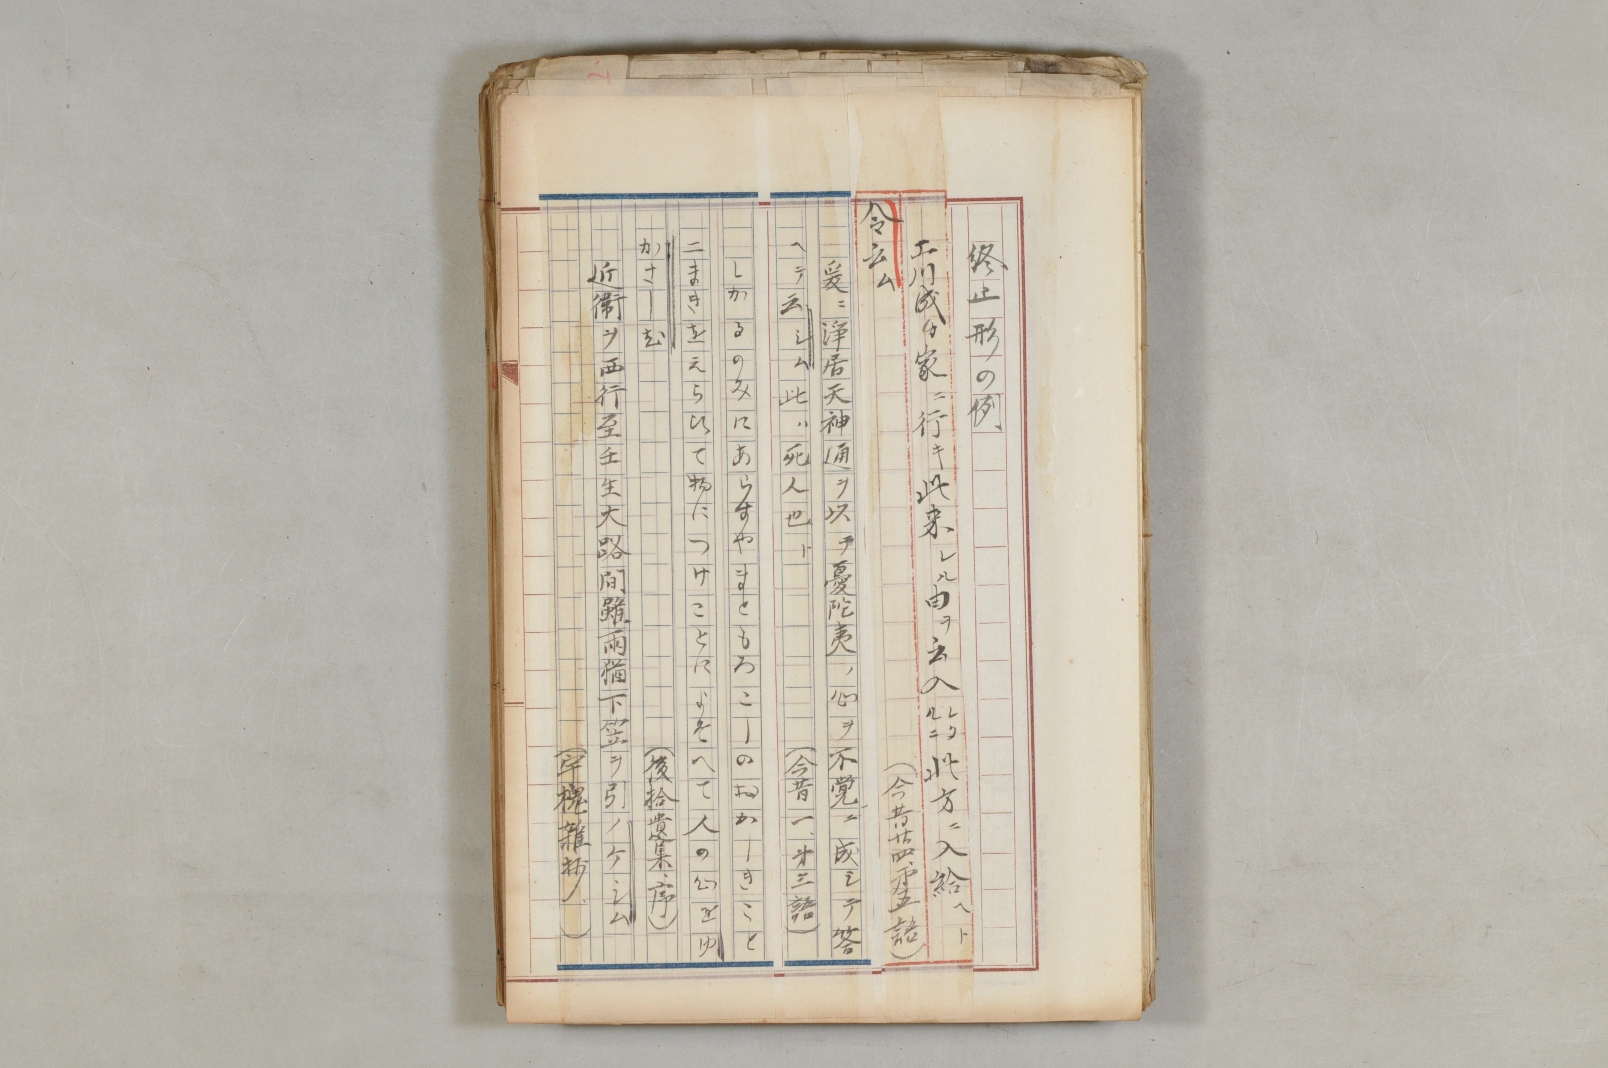 終止形の例
工川成ガ家ニ行キ此来レル由ヲ云入レタルニ此方ニ入給ヘト
令云ム
(今昔廿四、第五語)
爰ニ浄居天神通ヲ以テ憂陀夷ノ心ヲ不覚ニ成シテ答
ヘテ云シム此ハ死人也ト
(今昔一、第三語)
しかるのみにあらすやまともろこしのおかしきこと
二まきをえらひて物につけことによそへて人の心をゆ
かさしむ
(後拾遺集、序)
近衛ヲ西行至壬生大路間雖雨猶下笠ヲ引ノケシム
(宇槐雑抄)